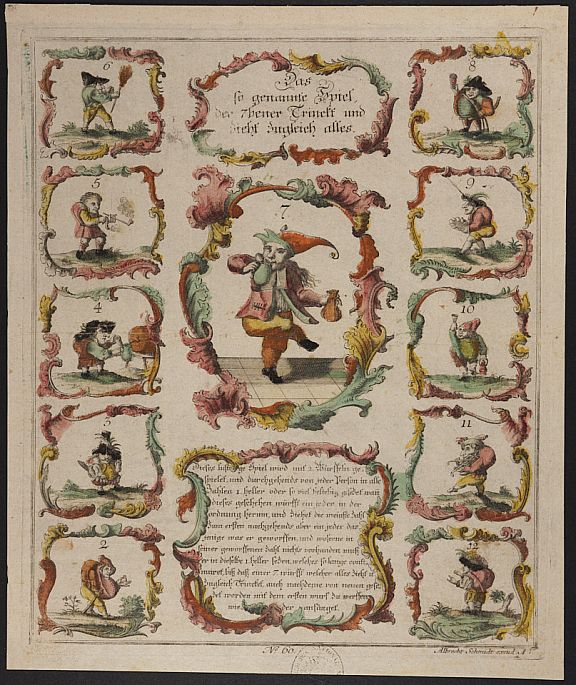 Das
so genannte Spiel,
der 7bener Trinckt und
Zieht Zugleich alles.
6
8
5
9
7
4
10
3
11
2
12
Dieses lustige Spiel wird mit 2. Würffeln ge-
spielet, und durchgehends von jeder Person in alle
Zahlen 1. heller oder so viel beliebig gesetzt wan
dieses geschehen würfft ein jeder in der
ordnung herum, und Ziehet die meinste Zahl
Zum ersten nachgehends aber ein jeder das
jenige was er geworffen, und woferne in
seiner geworffenen Zahl nichts vorhanden muß
er in dieselbe 1. heller sezen, welches so lange conti-
nuiret, biß daß einer 7. würfft welcher alles Zieht u.
Zugleich Trincket, auch nachdeme von neuen gese-
zet worden mit dem ersten wurf zu werffen
wieder anfänget.
No. 60.
Albrecht Schmidt excud. A. V.